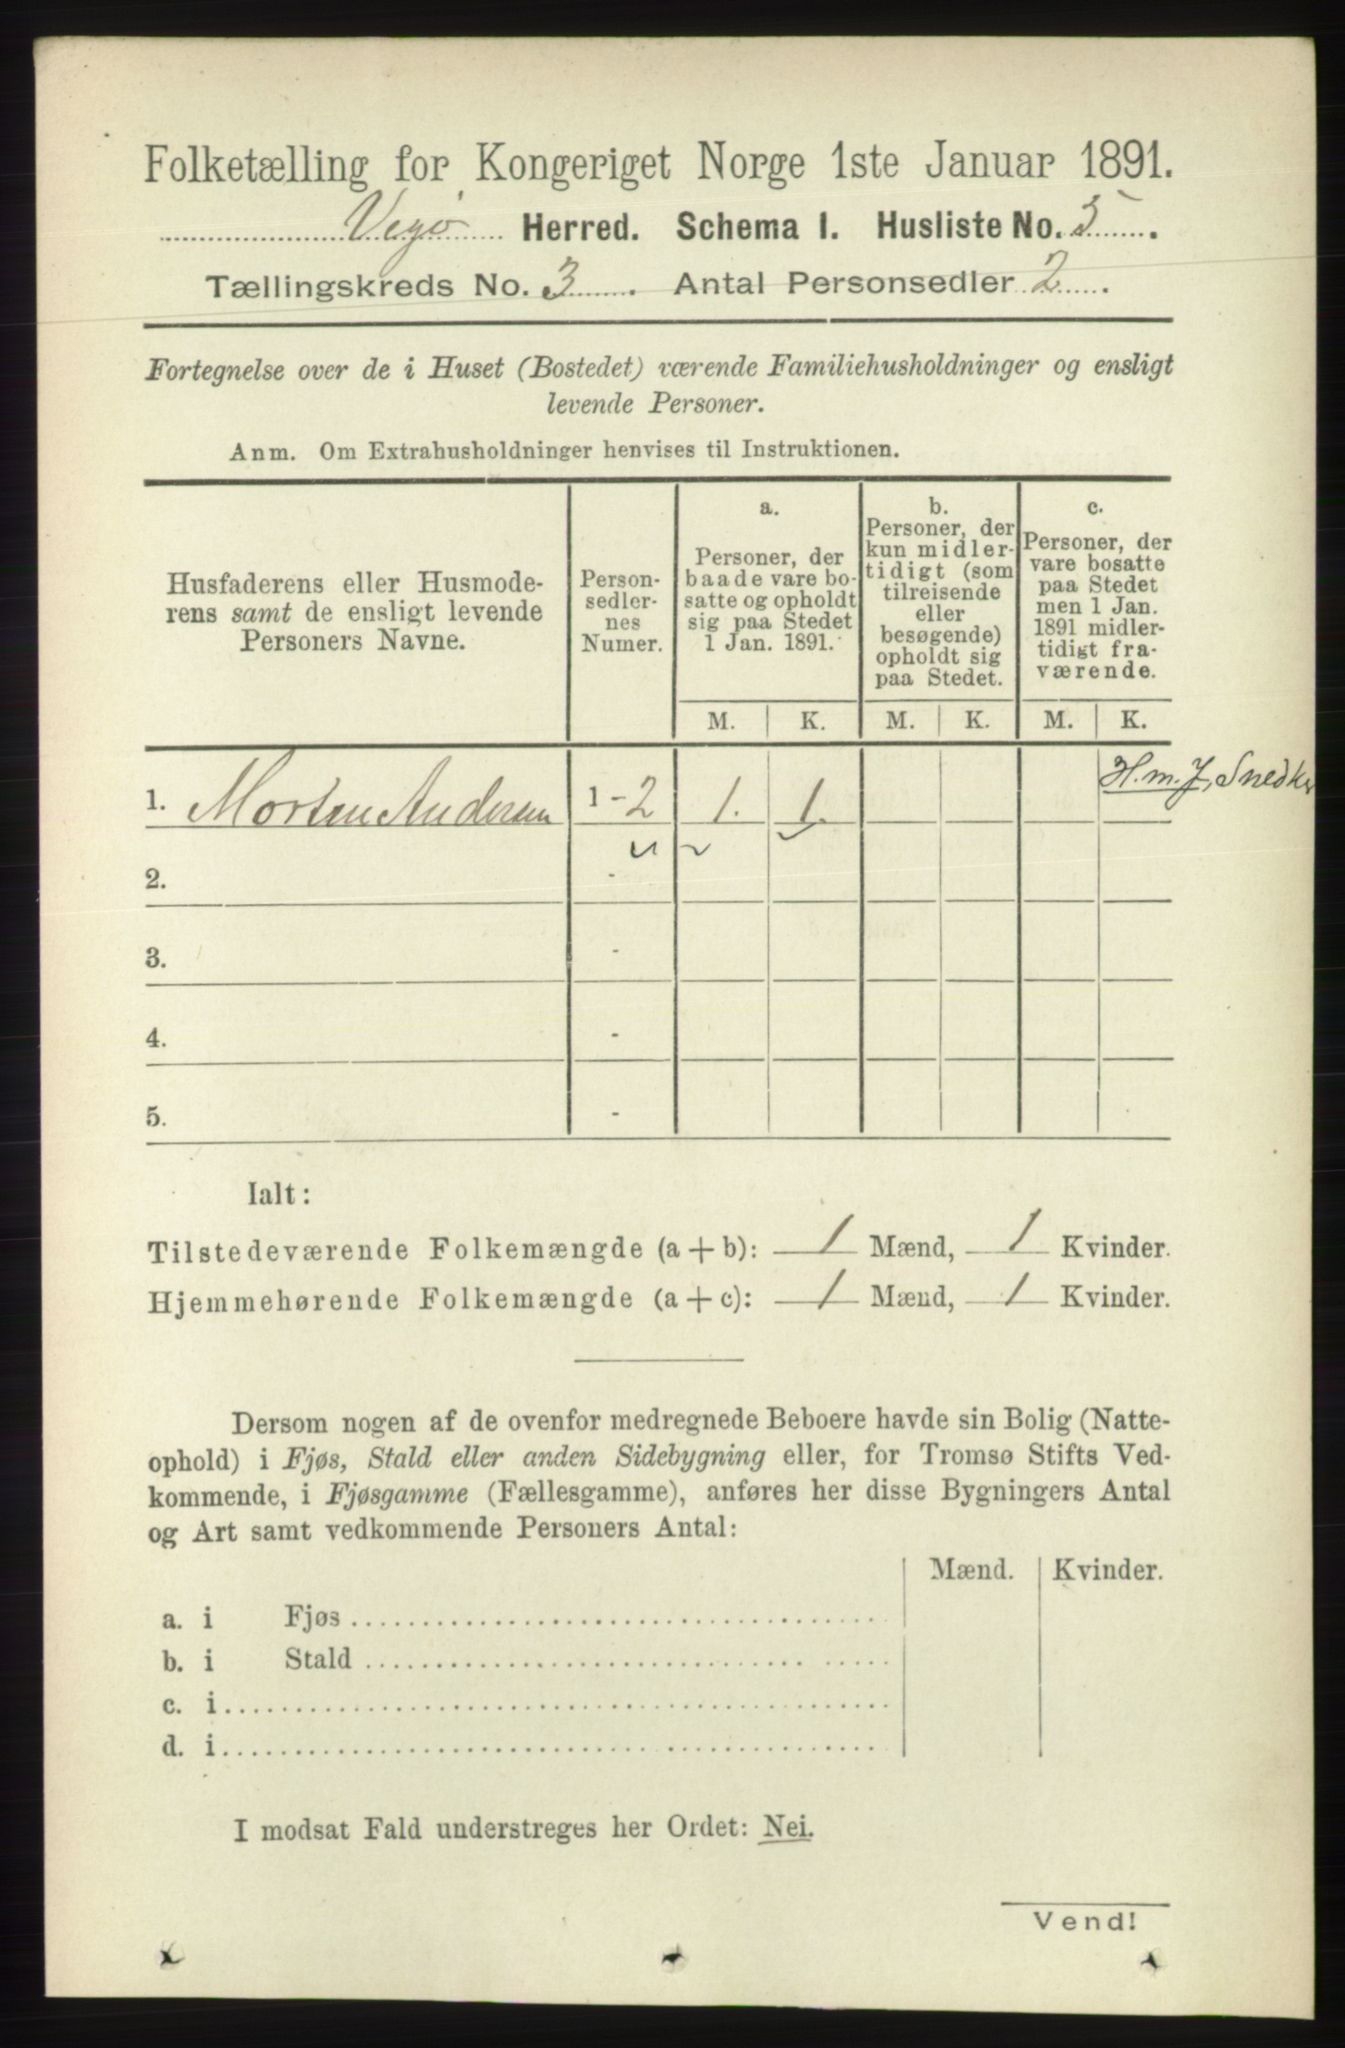 Folketælling for Kongeriget Norge 1ste Januar 1891.
Vegø Herred. Schema I. Husliste No. 5.
Tællingskreds No. 3. Antal Personsedler 2.
Fortegnelse over de i Huset (Bostedet) værende Familiehusholdninger og ensligt
levende Personer.
Anm. Om Extrahusholdninger henvises til Instruktionen.
Husfaderens eller Husmode-
rens samt de ensligt levende
Personers Navne.
Person-
sedler-
nes
Numer.
a.
Personer, der
baade vare bo-
satte og opholdt
sig paa Stedet
1 Jan. 1891.
b.
Personer, der
kun midler-
tidigt (som
tilreisende
eller
besøgende)
opholdt sig
paa Stedet.
c.
Personer, der
vare bosatte
paa Stedet
men 1 Jan.
1891 midler-
tidigt fra-
værende.
M. K. M. K. M. K.
H. m. J, Snedker
1. Morten Andersen 1 - 2 1. 1.
2. -
3. -
4. -
5. -
Ialt:
Tilstedeværende Folkemængde (a + b): 1 Mænd, 1 Kvinder.
Hjemmehørende Folkemængde (a + c): 1 Mænd, 1 Kvinder.
Dersom nogen af de ovenfor medregnede Beboere havde sin Bolig (Natte-
ophold) i Fjøs, Stald eller anden Sidebygning eller, for Tromsø Stifts Ved-
kommende, i Fjøsgamme (Fællesgamme), anføres her disse Bygningers Antal
og Art samt vedkommende Personers Antal:
Mænd. Kvinder.
a. i Fjøs
b. i Stald
c. i
d. i
I modsat Fald understreges her Ordet: Nei.
Vend!